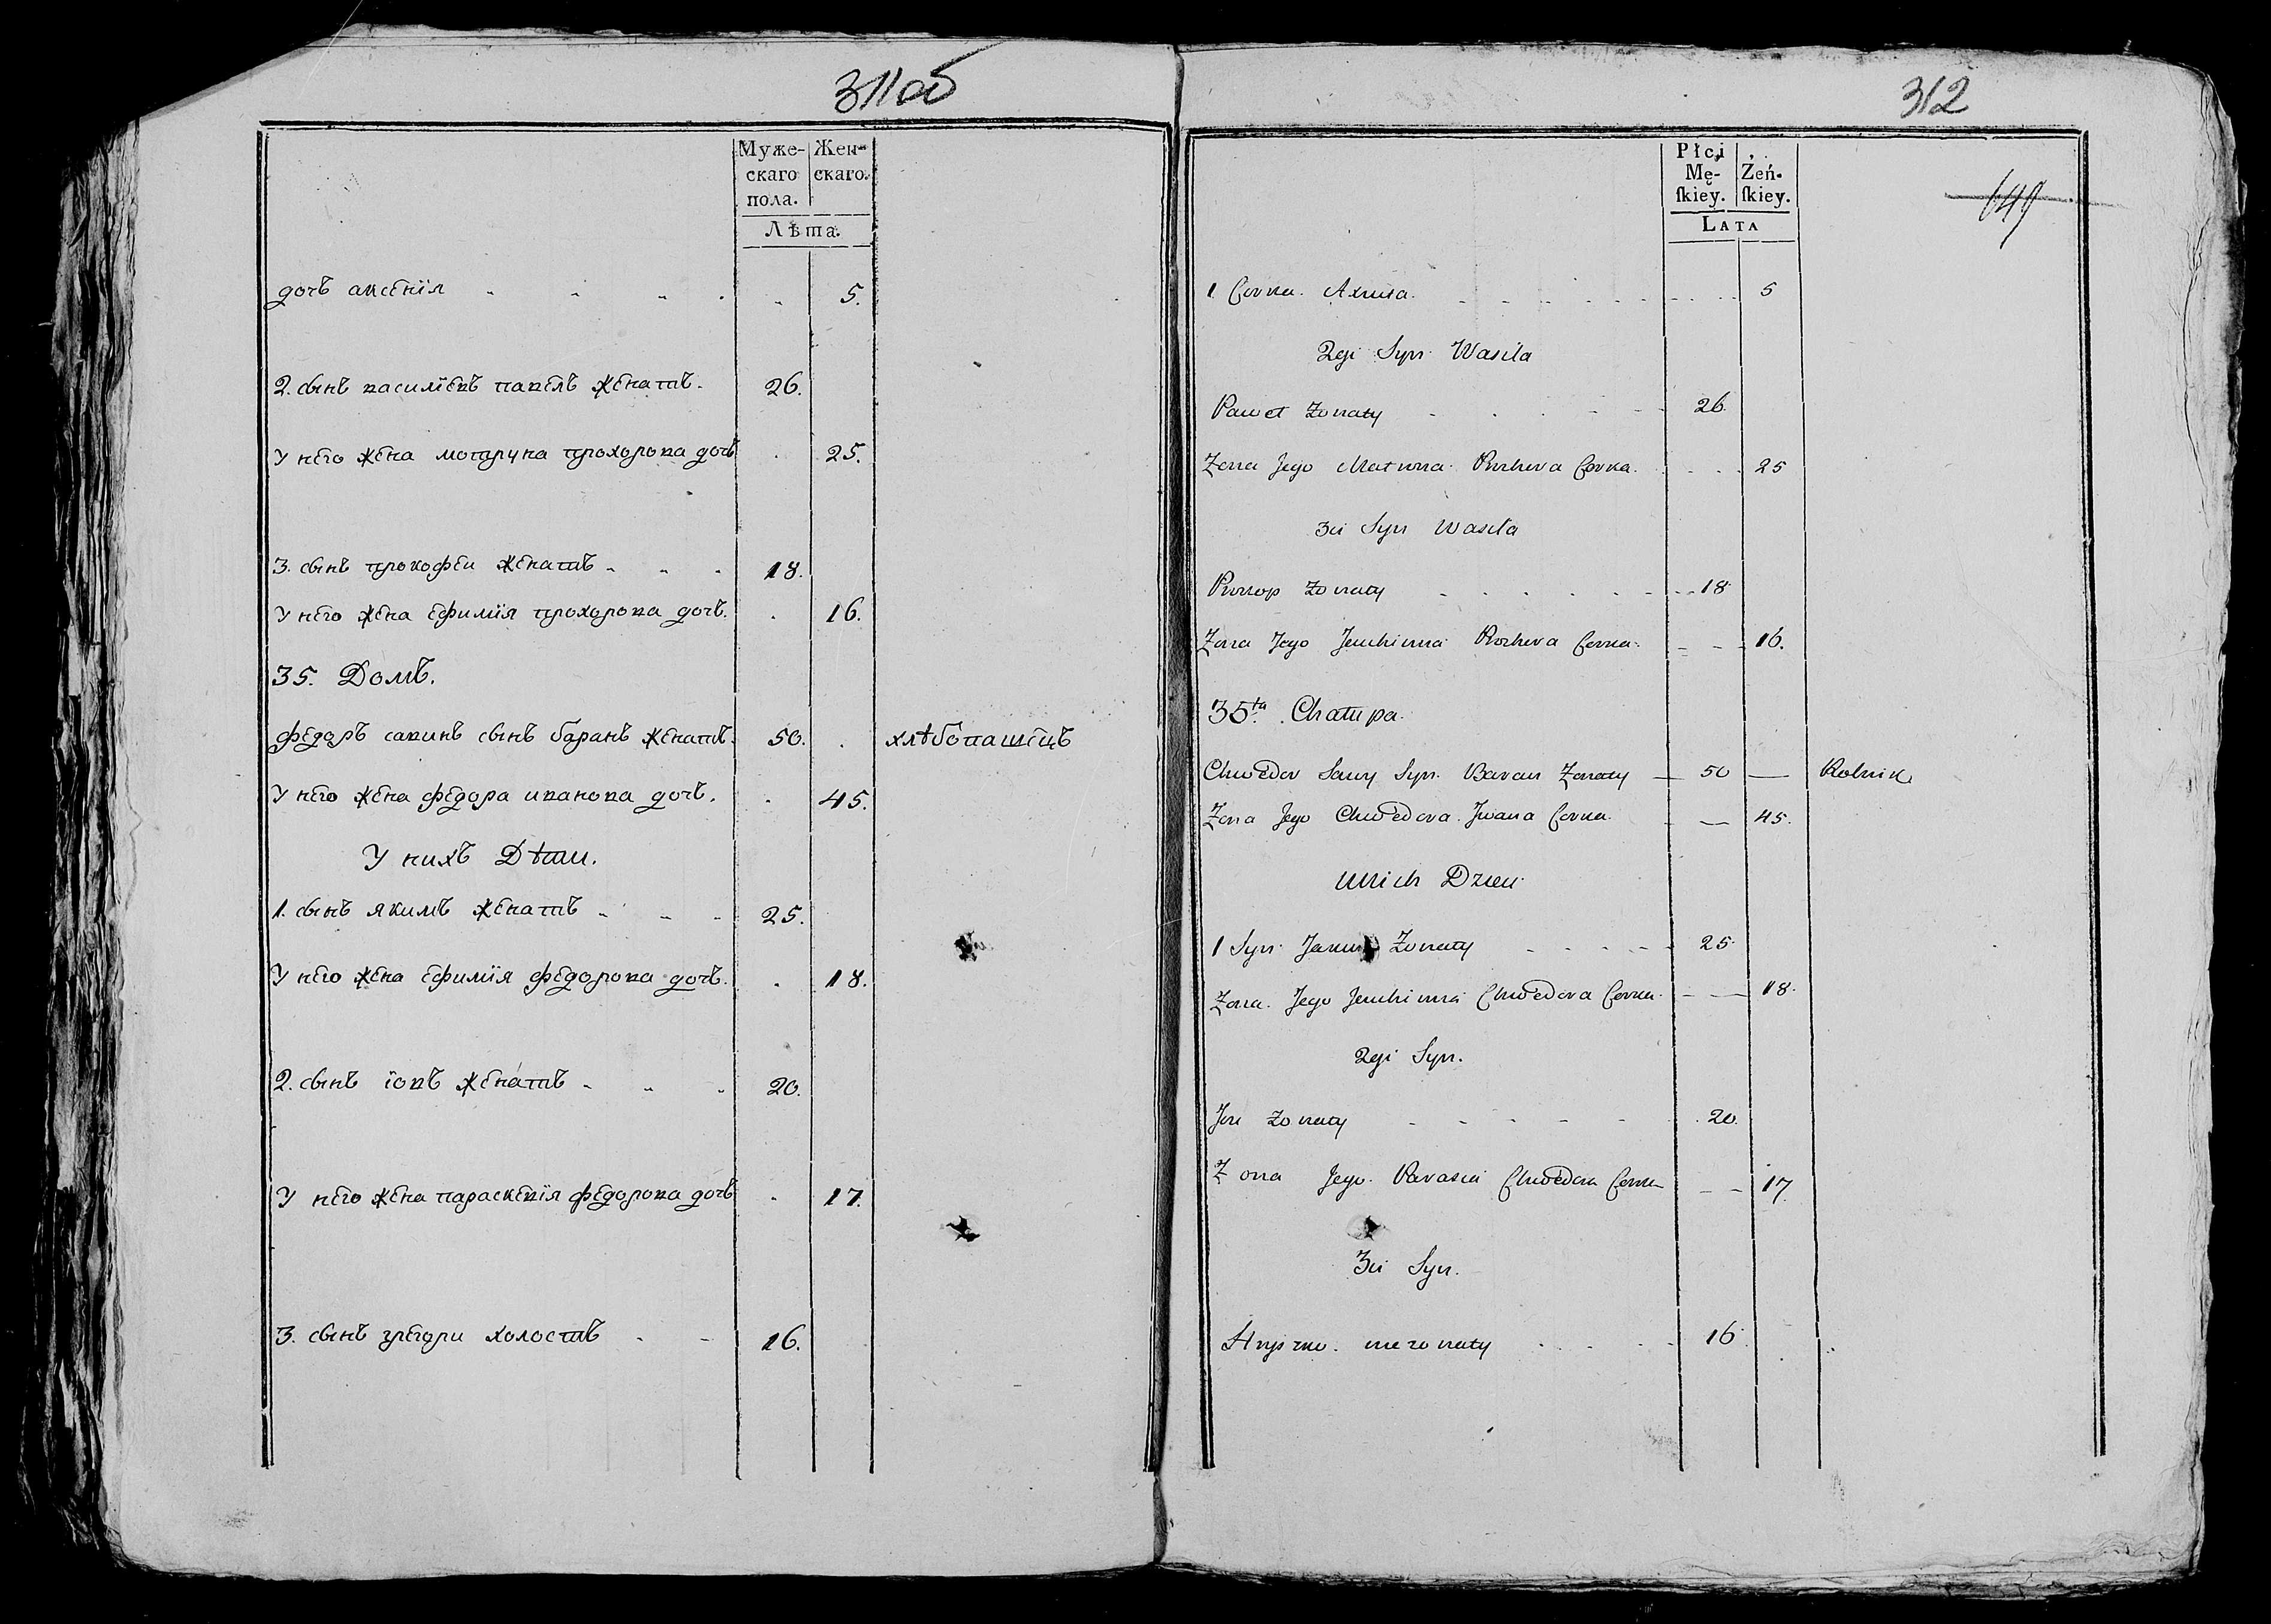 311об
Муже-
скаго
пола.
Жен-
скаго.
Лѣта.
дочь аксенїя 5.
2. сынъ василїевъ павелъ женатъ. 26.
У него жена мотруна прохорова дочь 25.
3. сынъ прокофеи женатъ 18.
У него жена ефимїя прохорова дочь. 16.
35. Домъ.
федоръ савинъ сынъ баранъ женатъ. 50. хлѣбопашецъ
У него жена федора иванова дочь. 45.
У нихъ Дѣти.
1. сынъ якимъ женатъ 25.
У него жена ефимїя федорова дочь. 18.
2. сынъ їовъ женатъ 20.
У него жена параскевїя федорова дочь 17.
3. сынъ грегори холостъ 16.
312
649
Płci
Mę-
skiey.
Żeń-
skiey.
LATA
1 Corka. Axinia. 5
2gi Syn Wasila
Paweł Zonaty 26.
Zona Jego Matrona Prochora Corka. 25
3ci Syn Wasila
Prokop Zonaty 18
Zona Jego Jeuchimia Prochora Corka. 16.
35ta Chałupa.
Chwedor Sawy Syn Baran Zonaty 50 Rolnik
Zona Jego Chwedora Jwana Corka. 45.
Unich Dzieci
1 Syn Jakim Zonaty 25.
Zona Jego Jeuchimia Chwedora Corka. 18.
2gi Syn.
Jow Zonaty 20.
Zona Jego Parasia Chwedora Corka 17.
3ci Syn.
Hryszko. niezonaty 16